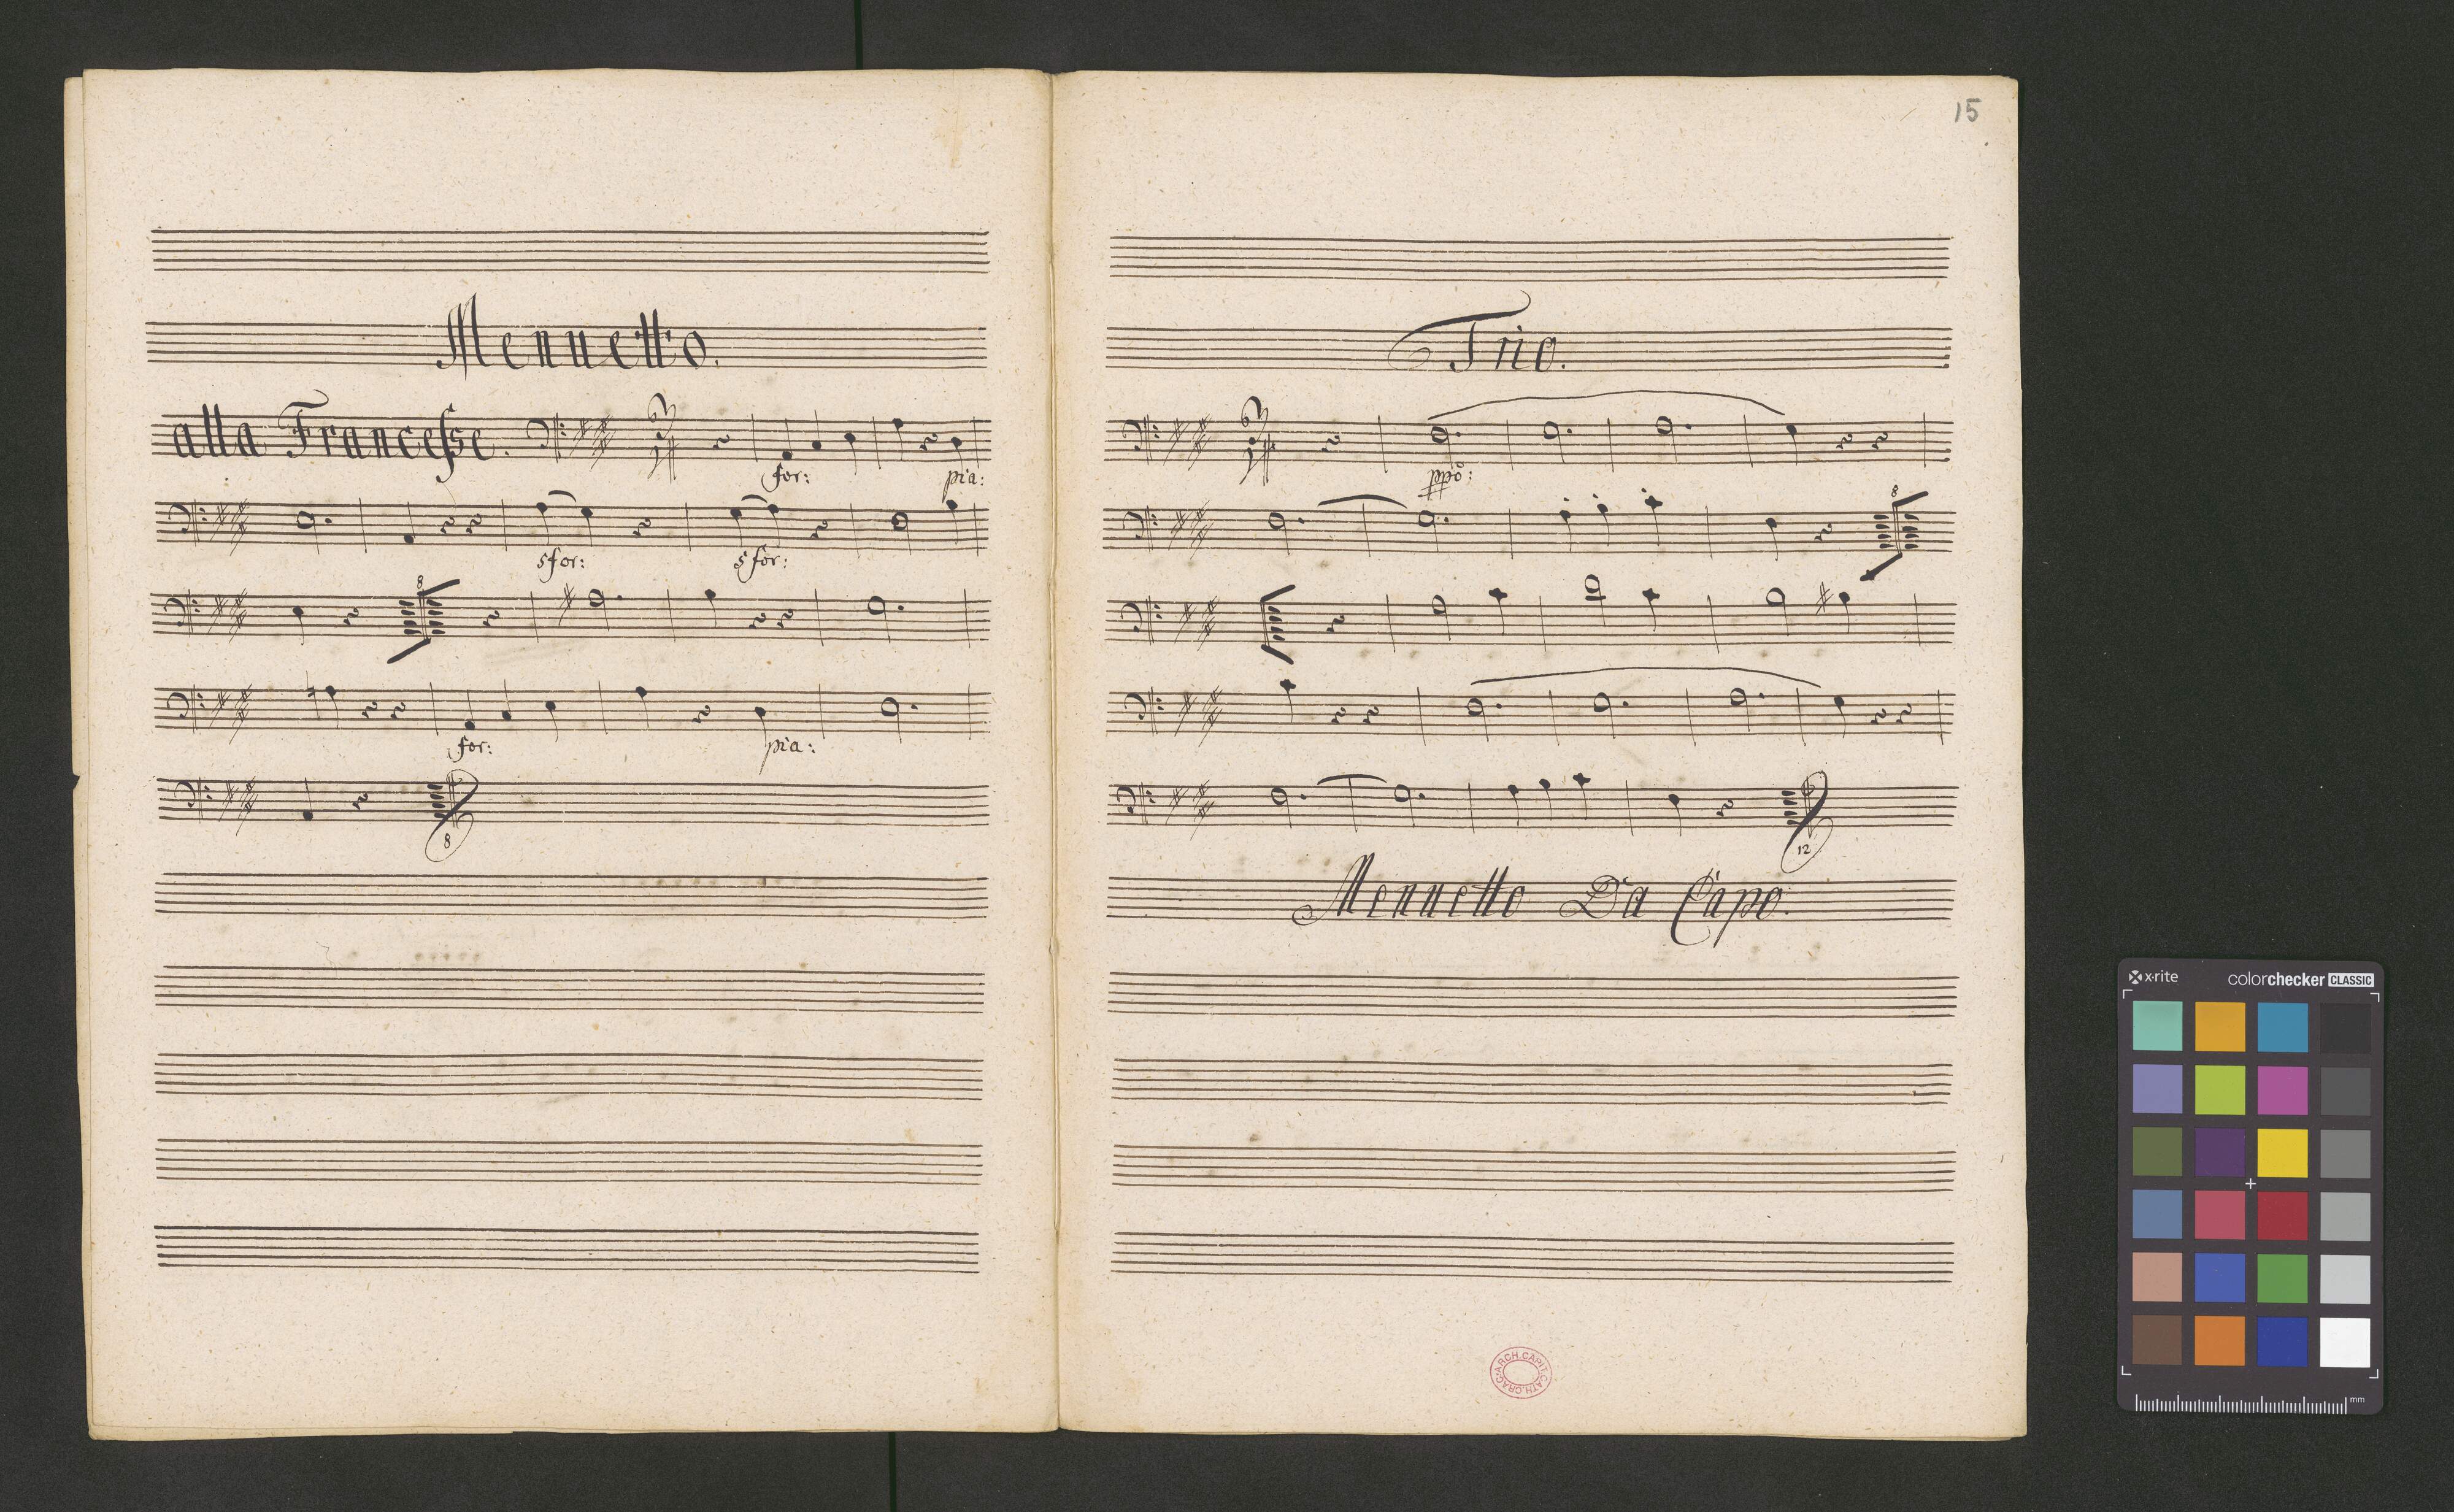 Mennetto.
alla Francesse.
for: pia:
sfor: sfor:
8
for: pia:
8
15
Trio.
ppo:
8
12
Mennetto Da Capo.
ARCH.CAPIT.CATH.CRAC.
x·rite colorchecker CLASSIC
mm